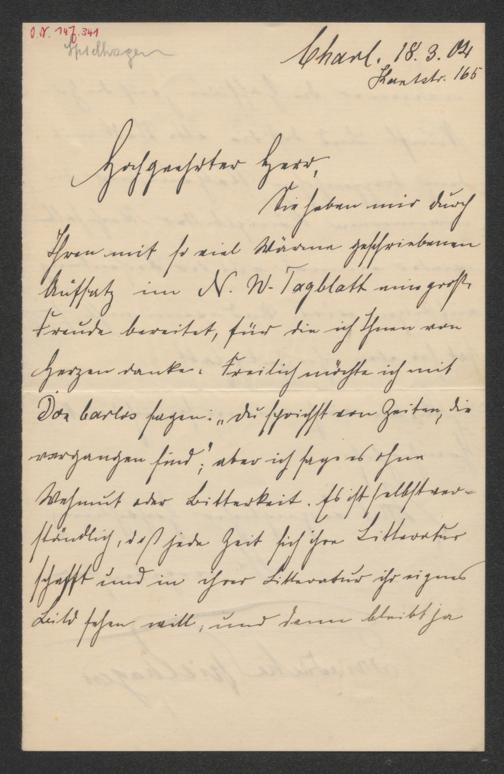 I.N. 147.341
Spielhagen
Charl. 18. 3. 04
Kantstr. 165
Hochgeehrter Herr,
Sie haben mir durch
Ihren mit so viel Wärme geschriebenen
Aufsatz im N. W. Tagblatt eine große
Freude bereitet, für die ich Ihnen von
Herzen danke. Freilich möchte ich mit
Don Carlos sagen: „Du sprichst von Zeiten, die
vergangen sind“; aber ich sage es ohne
Wehmut oder Bitterkeit. Es ist selbstver-
ständlich, daß jede Zeit sich ihre Litteratur
schafft und in ihrer Litteratur ihr eignes
Bild sehen will, und dann bleibt ja